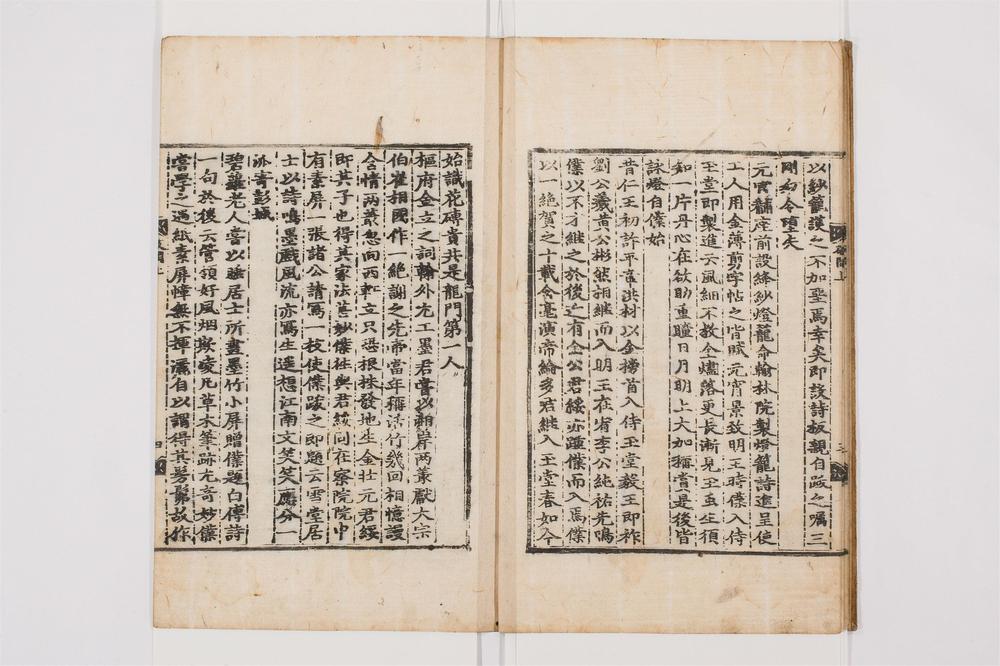 以紗籠護之不加堊焉幸矣即設詩板親自跋之嘱三
剛勿令墮失
元宵黼座前設絳紗燈籠命翰林院製燈籠詩進呈使
工人用金薄剪字帖之皆賦元宵景致明王時僕入侍
玉堂即製進云風細不教金燼落更長漸見玉虫生須
知一片丹心在欲助重瞳日月明上大加稱賞是後皆
詠燈自僕始
昔仁王初許平章洪材以金榜首入侍玉堂毅王即祚
劉公羲黃公彬然相継而入明王在宥李公純祐先鳴
僕以不才継之於後近有金公君綏亦踵僕而入焉僕
以一絶賀之十載含毫演帝綸多君継入玉堂春如今
始識花磚貴共是龍門第一人
樞府金立之詞翰外尤工墨君嘗以湘岸兩叢獻大宗
伯崔相國作一絶謝之先帝當年稱活竹幾回相憶謾
含情兩叢忽向西軒立只恐根株發地生金壮元君綏
即其子也得其家法甚妙僕徃與君綏同在察院院中
有素屏一張諸公請寫一枝使僕跋之即題云雪堂居
士以詩鳴墨戲風流亦寫生遥想江南文笑笑應分一
派寄彭城
碧蘿老人嘗以睡居士所畫墨竹小屏贈僕題白傅詩
一句於後云管領好風烟欺凌凡草木筆跡尤奇妙僕
嘗學之過紙素屏幛無不揮灑自以謂得其髣髴故作